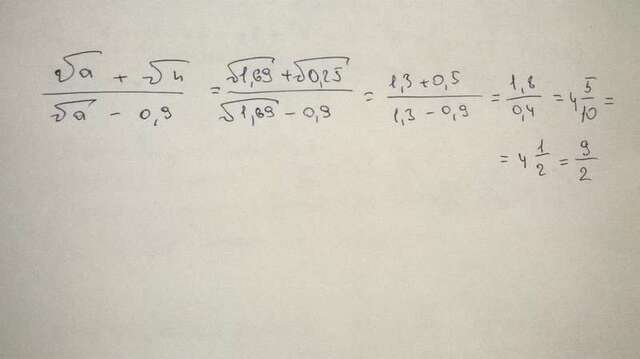 (√a + √n)/(√a - 0,9) = (√1,69 + √0,25)/(√1,69 - 0,9) = (1,3 + 0,5)/(1,3 - 0,9) = 1,8/0,4 = 4 5/10 =
= 4 1/2 = 9/2